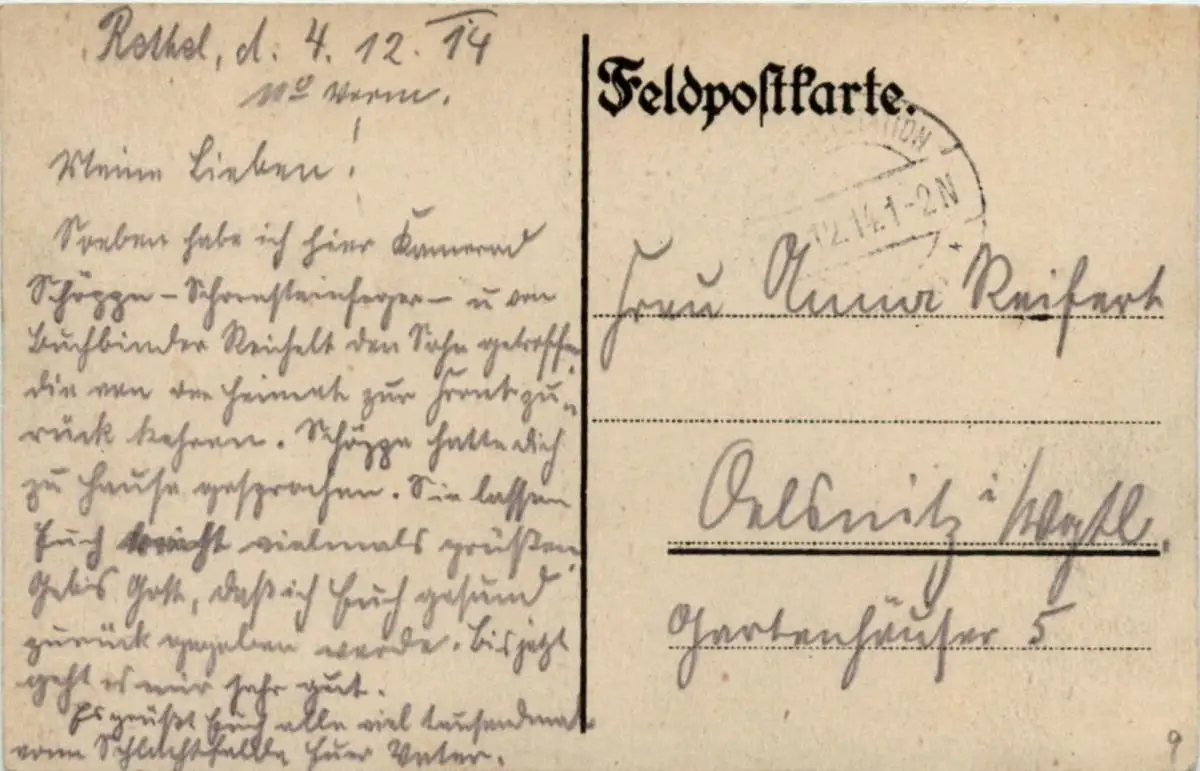 Rethel, d. 4. 12. 14
11º Vorm.
Meine Lieben!
Soeben habe ich hier Kamerad
Schöppe – Schornsteinfeger – u von
Buchbinder Reichelt den Sohn getroffen
die von der Heimat zur Front zu-
rück kehren. Schöppe hatte dich
zu Hause gesprochen. Sie lassen
Euch vielmals grüßen.
Geb's Gott, daß ich Euch gesund
zurück gegeben werde. Bis jetzt
geht es mir sehr gut.
Es grüßt Euch alle viel tausendmal
vom Schlachtfelde Euer Vater.
Feldpostkarte.
12.14.1-2N
Frau Anna Reifert
Oelsnitz i/Vgtl.
Gartenhäuser 5
9